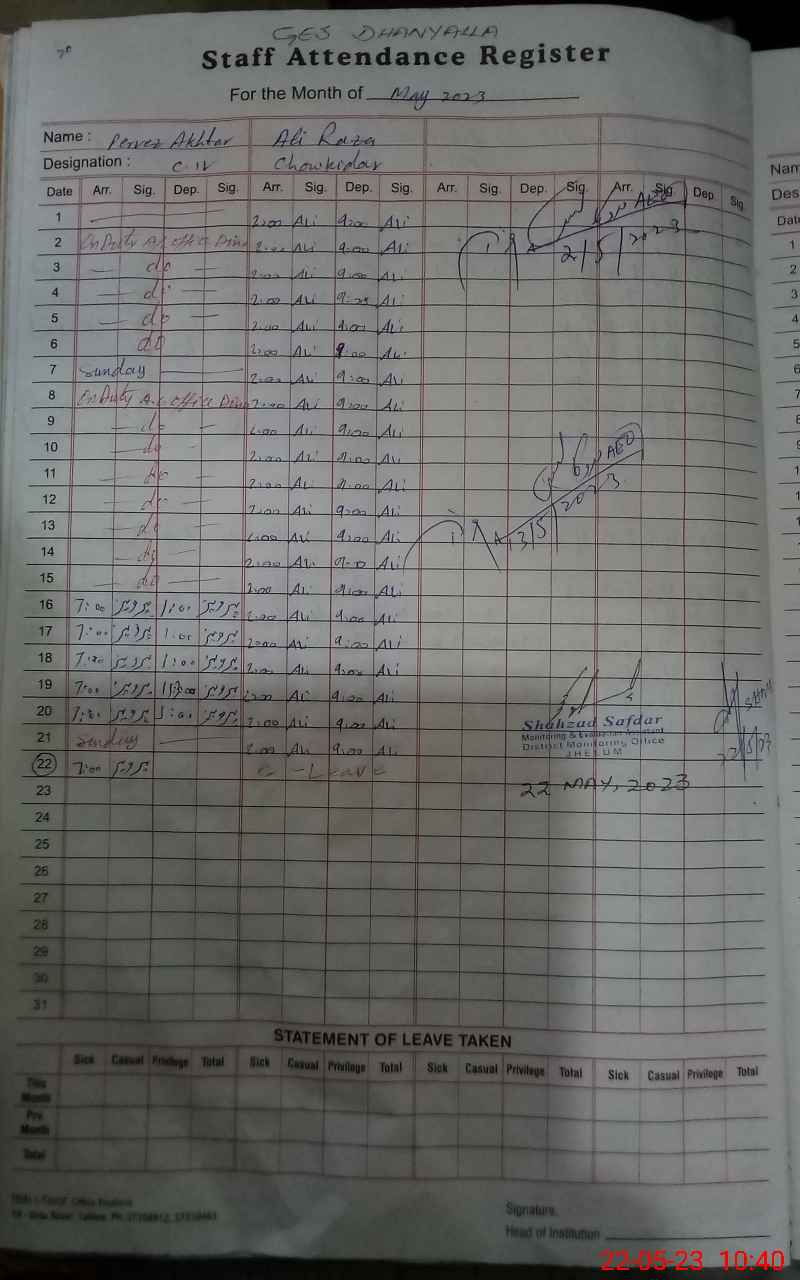 GES DHANYALLA
Staff Attendance Register
For the Month of May 2023
Name : Pervez Akhtar Ali Raza
Designation : C-IV Chowkidar
Date Arr. Sig. Dep. Sig. Arr. Sig. Dep. Sig. Arr. Sig. Dep. Sig. Arr. Sig. Dep. Sig.
1 2:00 Ali 9:00 Ali
2 On Duty A.C office 2:00 Ali 9:00 Ali
2/5/2023
3 do 2:00 Ali 9:00 Ali
4 do 2:00 Ali 9:00 Ali
5 do 2:00 Ali 9:00 Ali
6 do 2:00 Ali 9:00 Ali
7 Sunday 2:00 Ali 9:00 Ali
8 On Duty A.C office 2:00 Ali 9:00 Ali
9 do 2:00 Ali 9:00 Ali
10 do 2:00 Ali 9:00 Ali
AEO
11 do 2:00 Ali 9:00 Ali
12 do 2:00 Ali 9:00 Ali
13 do 2:00 Ali 9:00 Ali
13/5/2023
14 do 2:00 Ali 9:00 Ali
15 do 2:00 Ali 9:00 Ali
16 7:00 پرویز 1:00 پرویز 2:00 Ali 9:00 Ali
17 7:00 پرویز 1:00 پرویز 2:00 Ali 9:00 Ali
18 7:00 پرویز 1:00 پرویز 2:00 Ali 9:00 Ali
19 7:00 پرویز 1:00 پرویز 2:00 Ali 9:00 Ali
20 7:00 پرویز 1:00 پرویز 2:00 Ali 9:00 Ali
Shahzad Safdar
Monitoring & Evaluation Assistant
District Monitoring Office
JHELUM
21 Sunday 2:00 Ali 9:00 Ali
22 7:00 پرویز C-Leave
22/5/23
22 MAY, 2023
23
24
25
26
27
28
29
30
31
STATEMENT OF LEAVE TAKEN
Sick Casual Privilege Total Sick Casual Privilege Total Sick Casual Privilege Total Sick Casual Privilege Total
This Month
Pre Month
Total
Signature.
Head of Institution
22-05-23 10:40
Nam
Des
Date
1
2
3
4
5
6
7